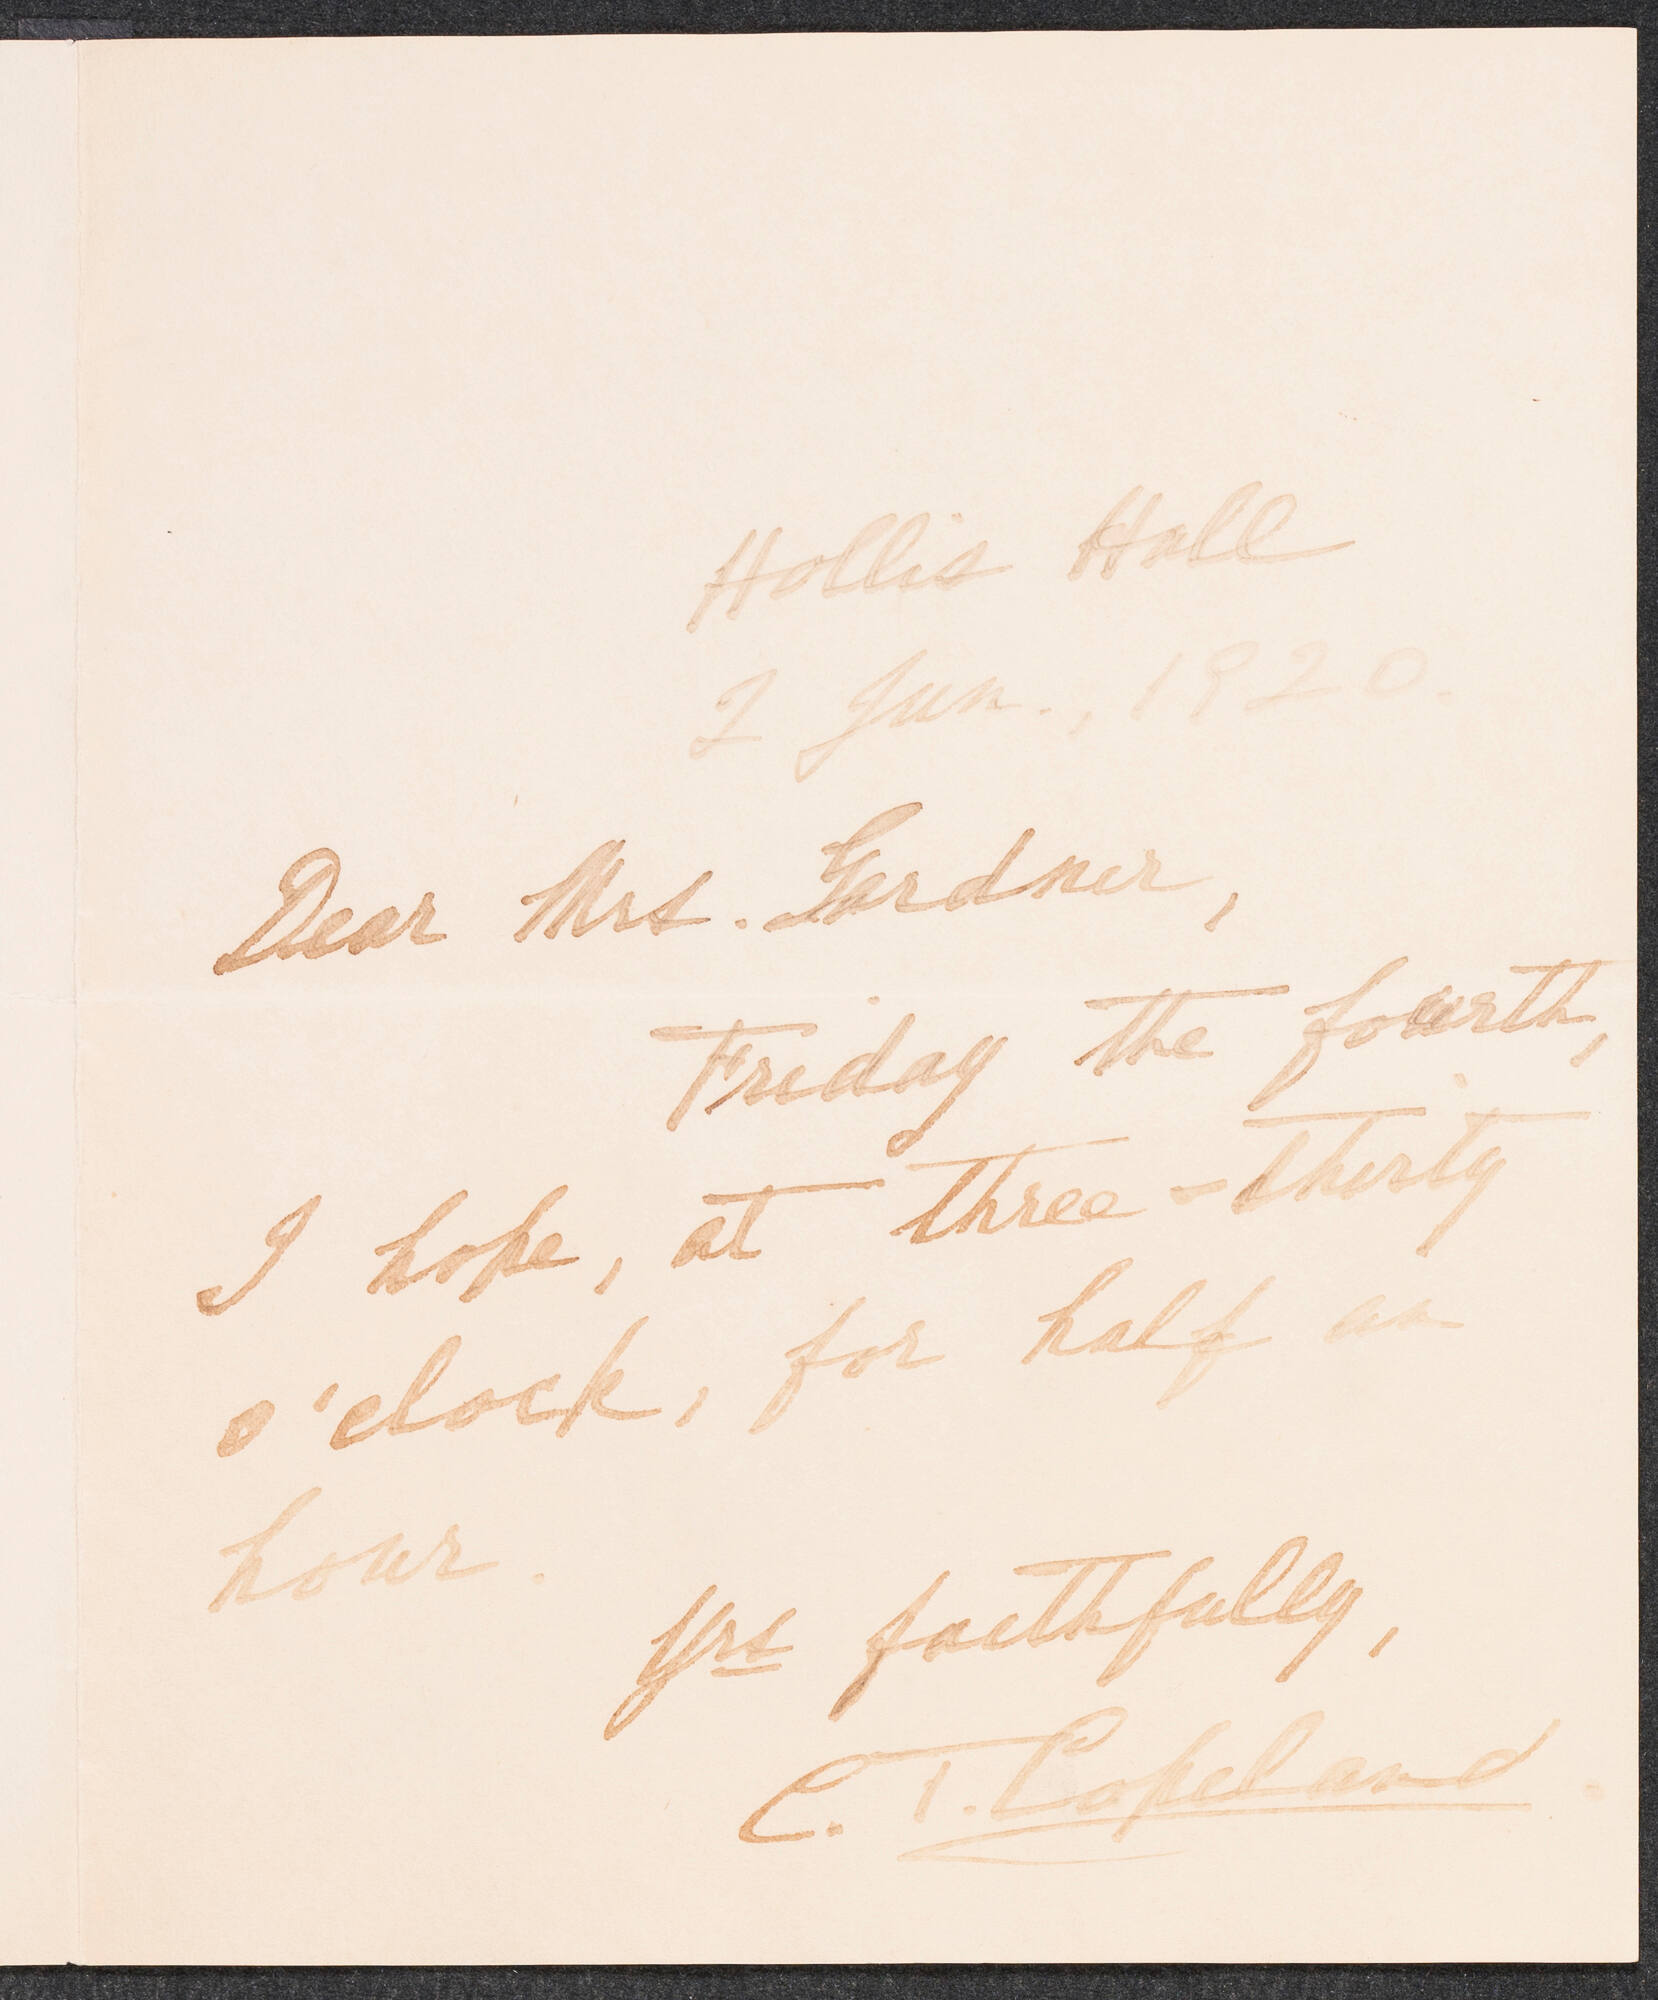 Hollis Hall
2 Jun., 1920.
Dear Mrs. Gardner,
Friday the fourth,
I hope, at three-thirty
o'clock, for half an
hour.
Yrs faithfully,
C. T. Copeland